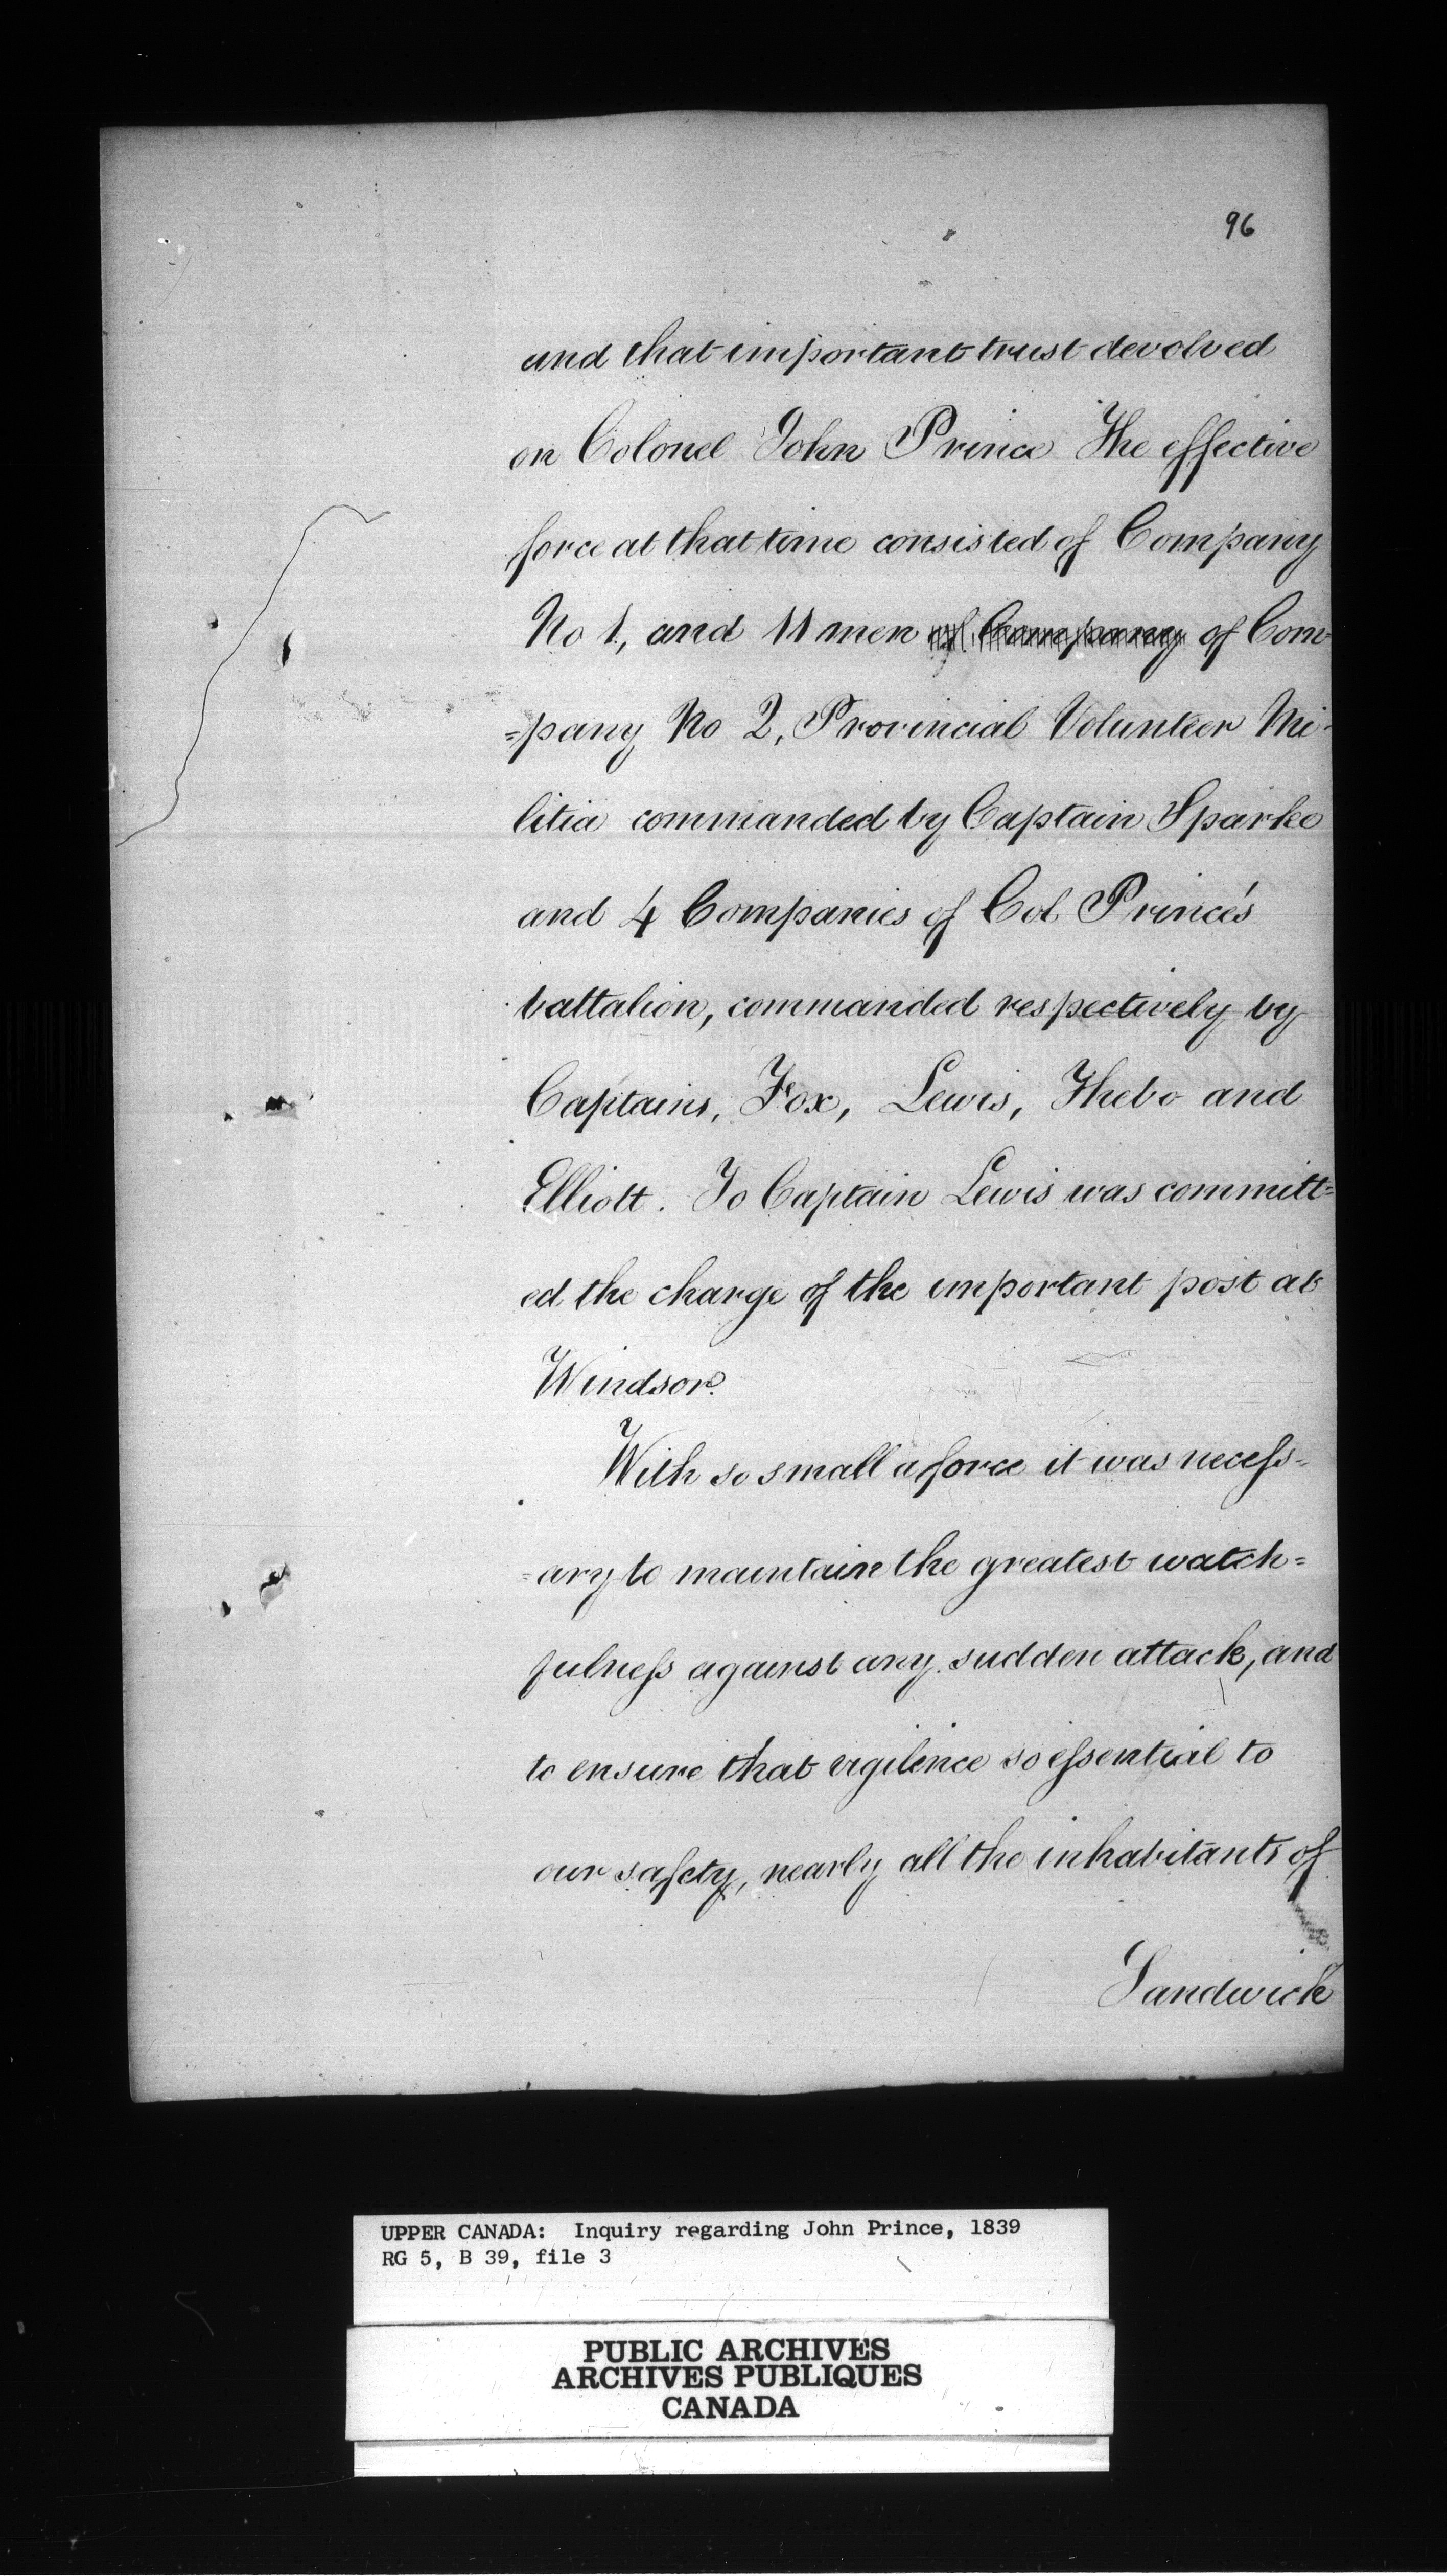 96
and that important trust devolved
on Colonel John Prince The effective
force at that time consisted of Company
No 1, and 11 men of Company of Com=
=pany No 2, Provincial Volunteer Mi-
litia commanded by Captain Sparke
and 4 Companies of Col Prince's
battalion, commanded respectively by
Captains, Fox, Lewis, Thebo and
Elliott. To Captain Lewis was committ=
ed the charge of the important post at
Windsor.
With so small a force it was necess=
=ary to maintain the greatest watch=
fulness against any sudden attack, and
to ensure that vigilence so essential to
our safety, nearly all the inhabitants of
Sandwich
UPPER CANADA: Inquiry regarding John Prince, 1839
RG 5, B 39, file 3
PUBLIC ARCHIVES
ARCHIVES PUBLIQUES
CANADA